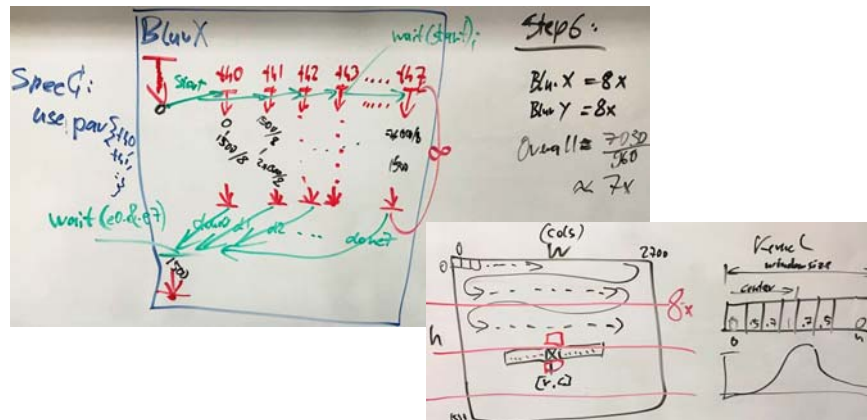 BlurX
wait(start);
SpecC:
use par{th0
th1,
;}
start
th0 th1 th2 th3 ..... th7
0
1500/8
1500/8
1500
8
wait(e0&..e7)
done0 d1 d2 ... done7
1500
Step6:
BlurX = 8x
BlurY = 8x
Overall = 7050
960
≈ 7x
(cols)
0 W 2700
0
8x
h
[r,c]
Kernel
window size
center
0 .5 .7 1 .7 .5 0
0 n